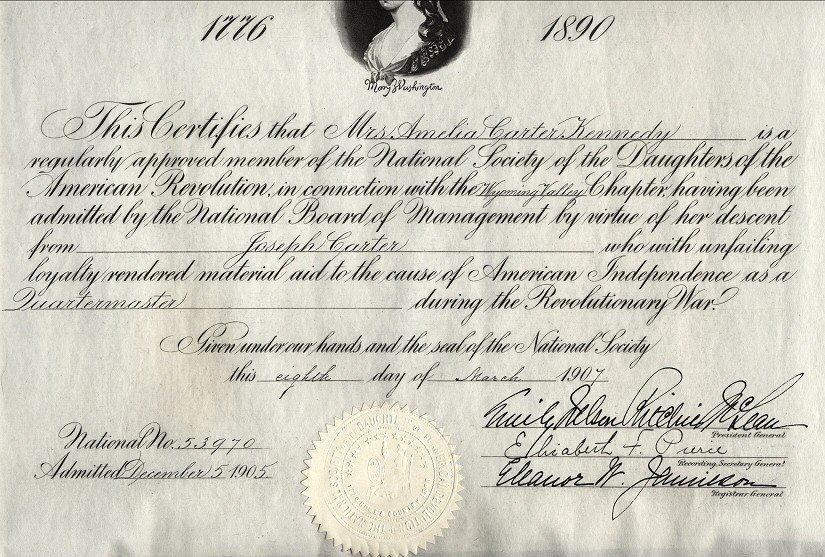 1776 1890
Mary Washington
This Certifies that Mrs. Amelia Carter Kennedy is a
regularly approved member of the National Society of the Daughters of the
American Revolution, in connection with the Wyoming Valley Chapter, having been
admitted by the National Board of Management by virtue of her descent
from Joseph Carter who with unfailing
loyalty rendered material aid to the cause of American Independence as a
Quartermaster during the Revolutionary War.
Given under our hands and the seal of the National Society
this eighth day of March 1907
Emily Nelson Ritchie McLean
President General
National No. 53970
Elisabeth F. Pierce
Recording Secretary General
Admitted December 5 1905.
Eleanor W. Jamieson
Registrar General